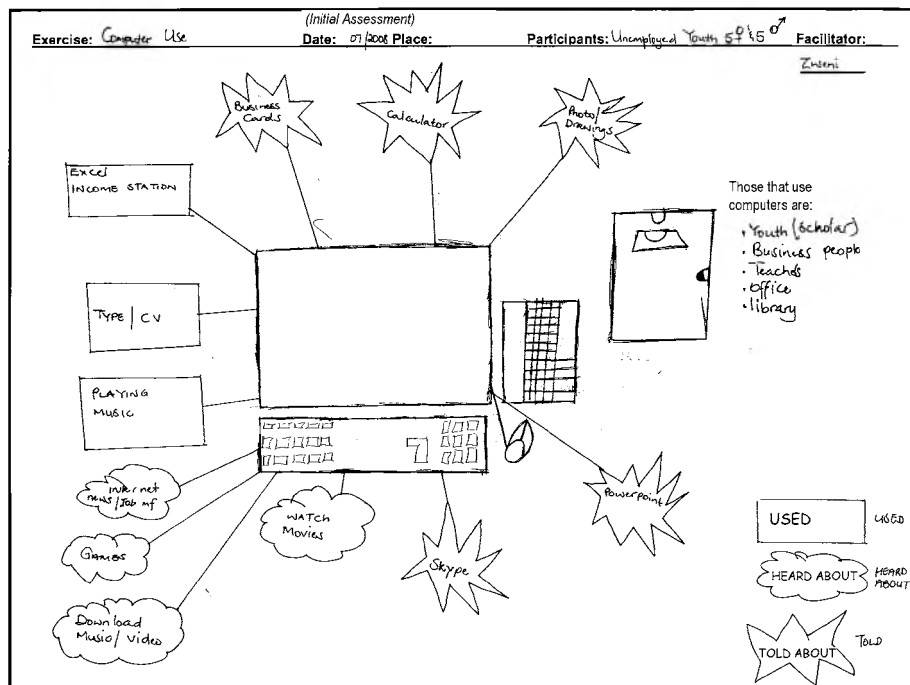 (Initial Assessment)
Exercise: Computer Use Date: 07/2008 Place: Participants: Unemployed Youth 5♀ & 5♂ Facilitator:
Zwseni
Business
Cards
Calculator
Photo/
Drawings
Excel
INCOME STATION
TYPE / CV
PLAYING
MUSIC
Internet
news/Job inf
GAMES
Download
Music/ video
WATCH
Movies
Skype
Powerpoint
Those that use
computers are:
• Youth (scholar)
• Business people
• Teachers
• office
• library
USED USED
HEARD ABOUT HEARD
ABOUT
TOLD ABOUT TOLD